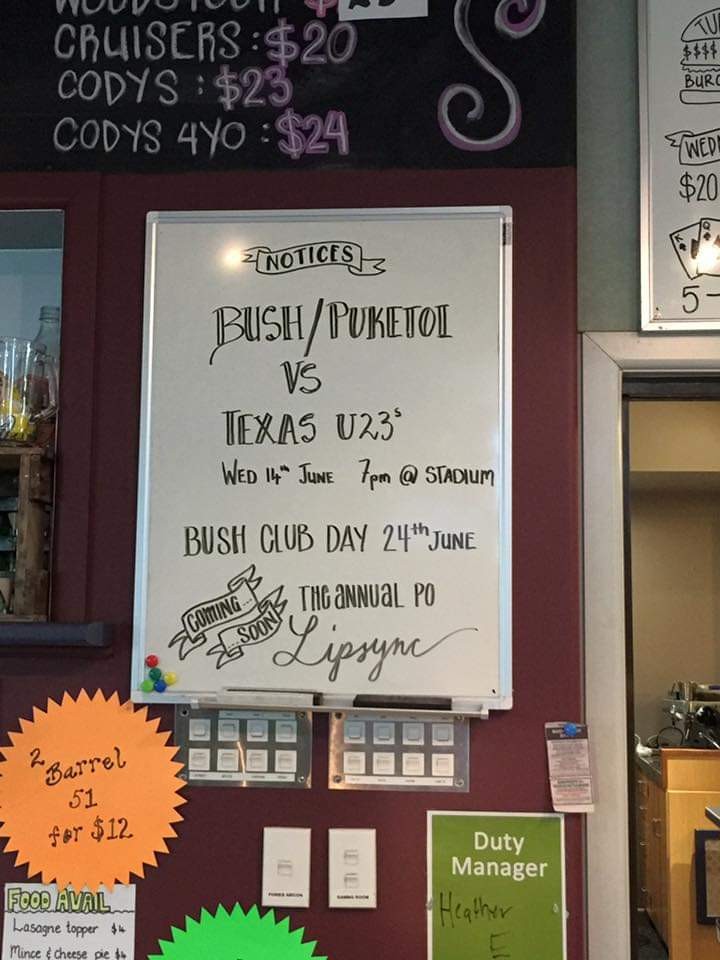 CRUISERS : $20
CODYS : $23
CODYS 4YO : $24
$$$$
BURG
WED
$20
K
Q
5-
NOTICES
BUSH/PUKETOI
VS
TEXAS U23s
WED 14th JUNE 7pm @ STADIUM
BUSH CLUB DAY 24th JUNE
COMING...
SOON
THE ANNUAL PO
Lipsync
2 Barrel
51
for $12
Duty
Manager
Heather
E
FOOD AVAIL
Lasagne topper $4
Mince & cheese pie $4